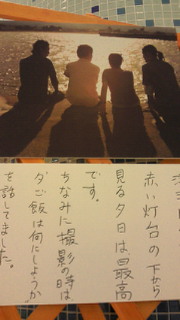 赤い灯台の下から
見る夕日は、最高
です。
ちなみに撮影の時は
夕ご飯は何にしようか
を話してました。